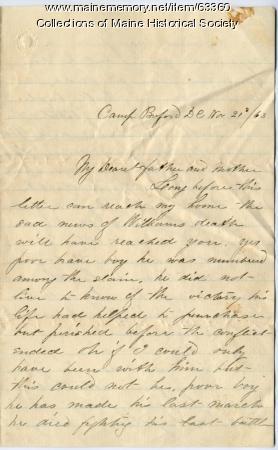 www.mainememory.net/item/63360
Collections of Maine Historical Society
Camp Buford DC Nov 21st/63
My Dear Father and Mother
Long before this
letter can reach my home the
sad news of Williams death
will have reached you. yes
poor brave boy he was numbered
among the slain, he did not
live to know of the victory his
life had helped to purchase
but perished before the conflict
ended Oh if I could only
have been with him but
this could not be, poor boy
he has made his last march
he died fighting his last battle